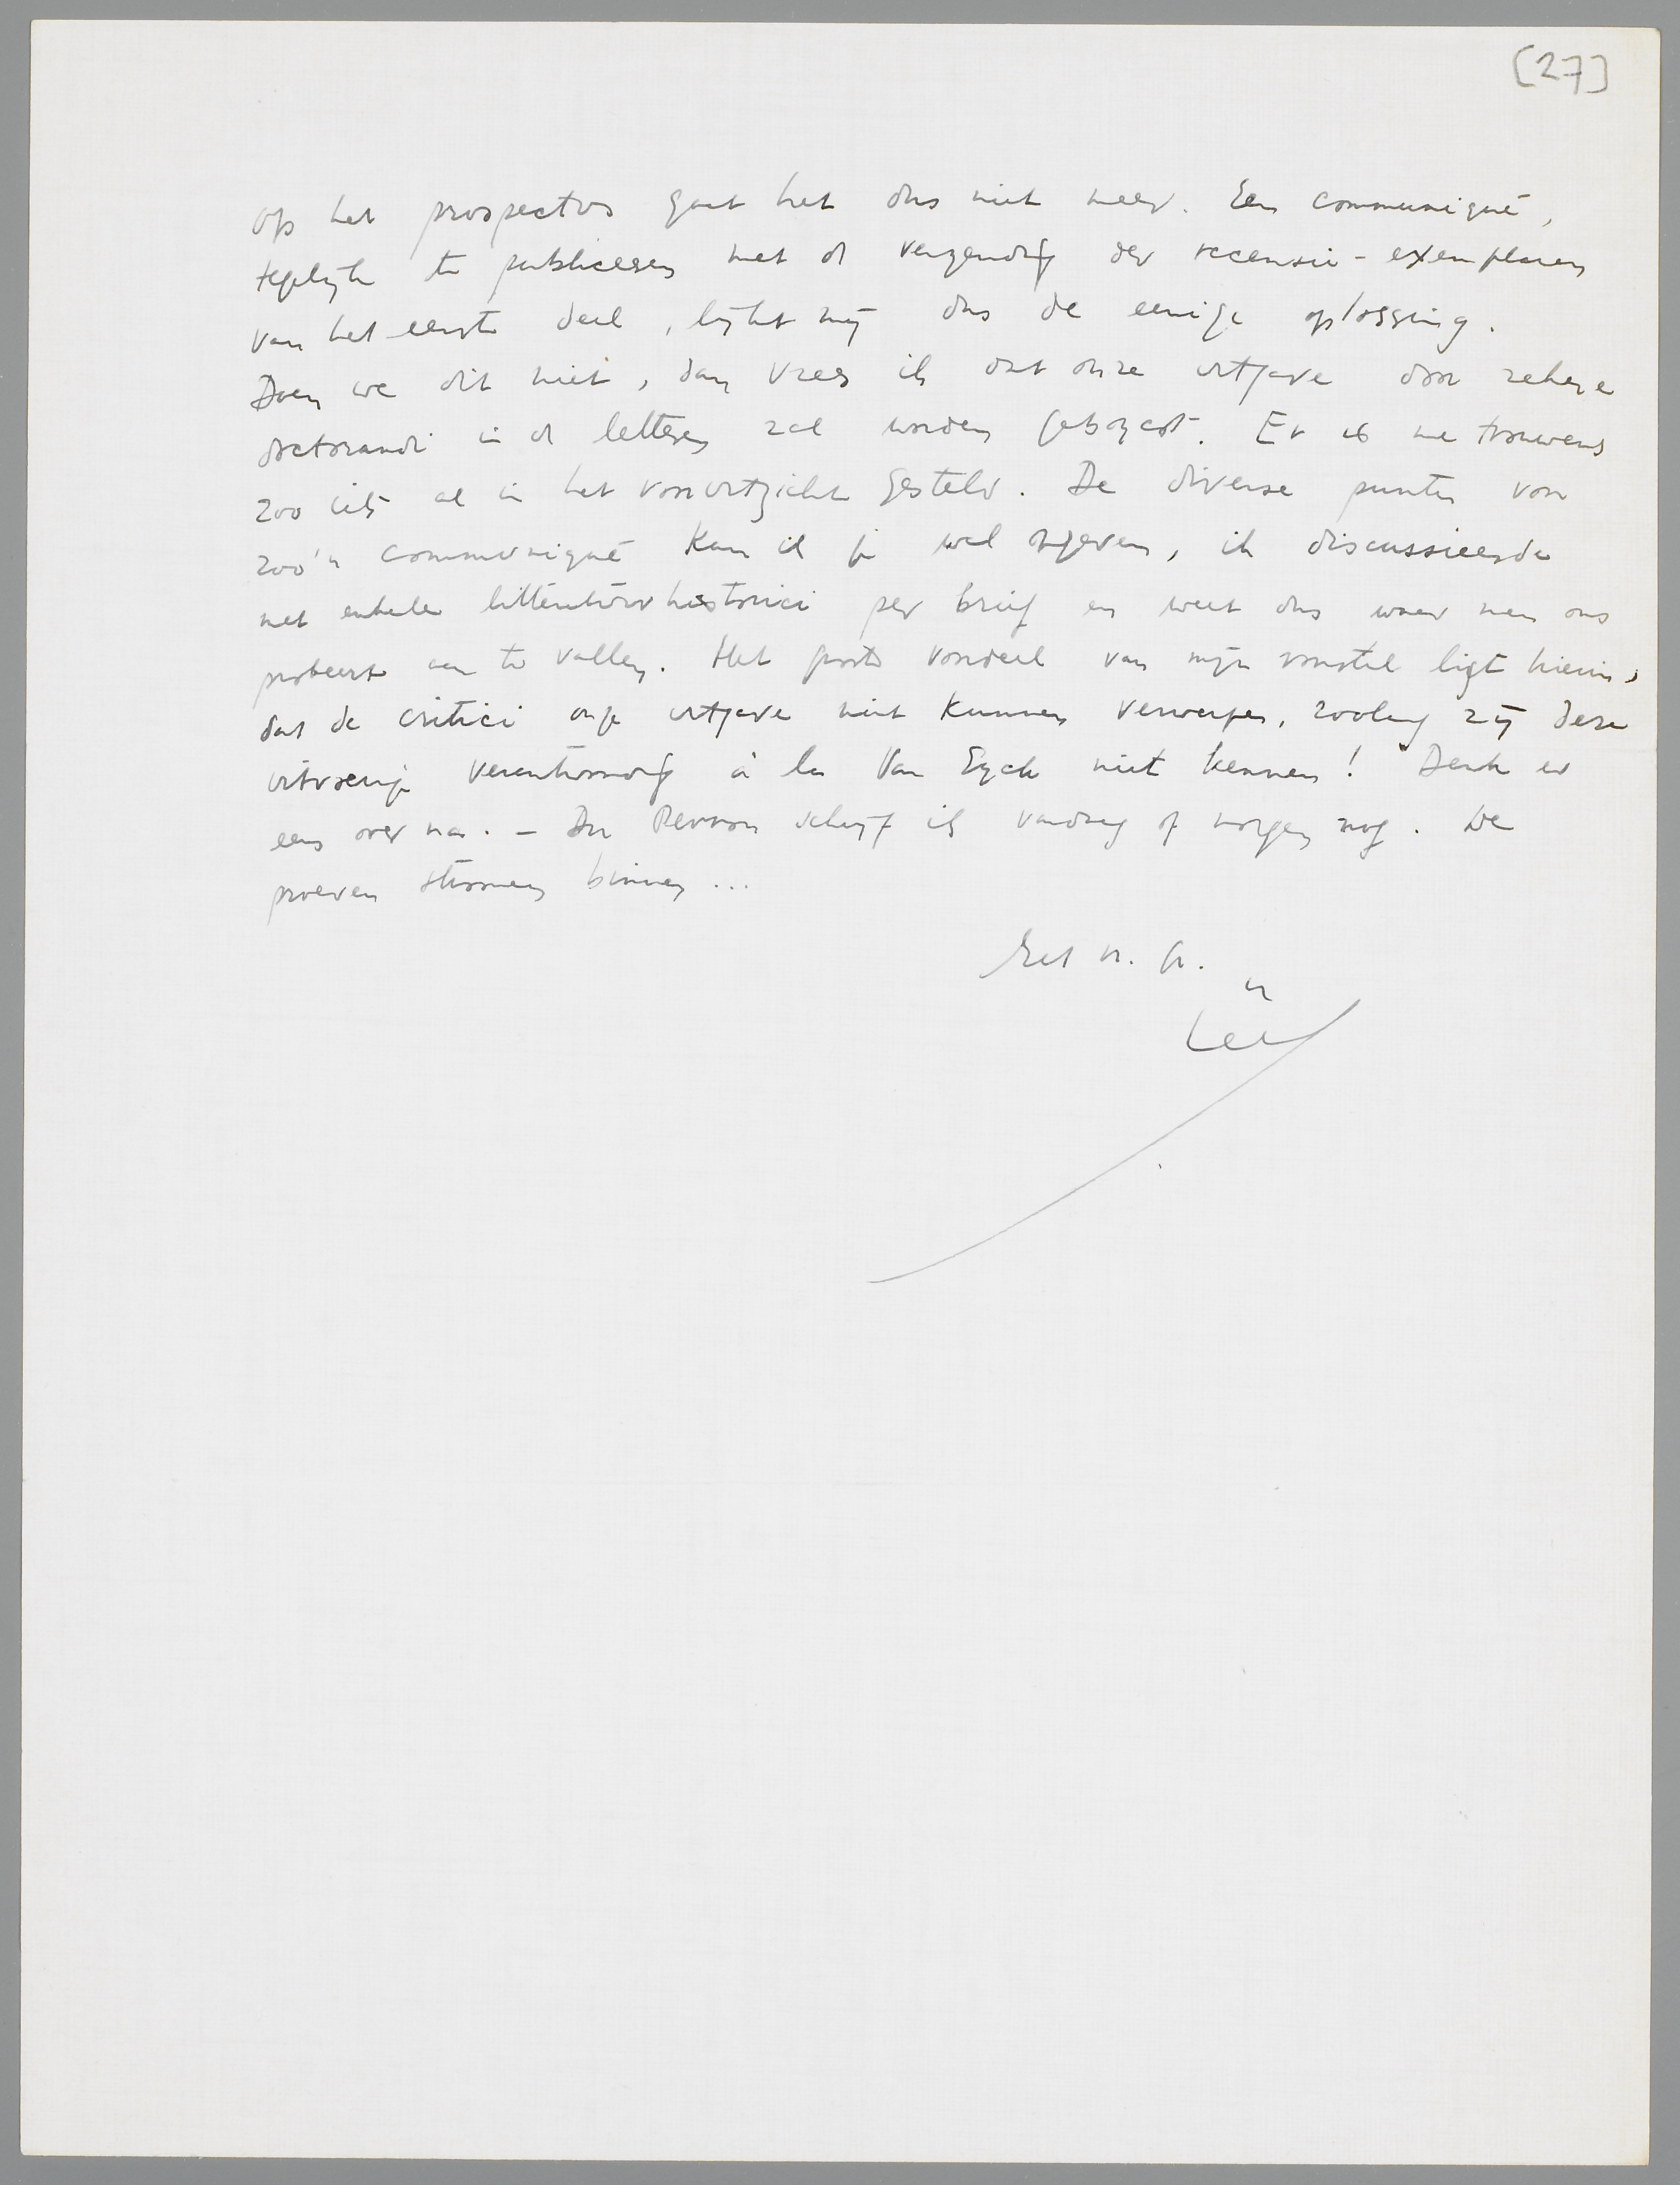 [27]
Op het prospectus gaat het dus niet meer. Een communiqué,
tegelijk te publiceeren met de verzending der recensie-exemplaren
van het eerste deel, lijkt mij dus de eenige oplossing.
Doen we dit niet, dan vrees ik dat onze uitgave door zekere
doctorandi in de letteren zal worden geboycot. Er is me trouwens
zoo iets al in het vooruitzicht gesteld. De diverse punten voor
zoo'n communiqué kan ik je wel opgeven, ik discussieerde
met enkele litteratuurhistorici per brief en weet dus waar men ons
probeert aan te vallen. Het groote voordeel van mijn voorstel ligt hierin,
dat de critici onze uitgave niet kunnen verwerpen, zoolang zij deze
uitvoerige verantwoording à la Van Eyck niet kennen! Denk er
eens over na. - Du Perron schrijf ik vandaag of morgen nog. De
proeven stroomen binnen ...
Met vr. gr.